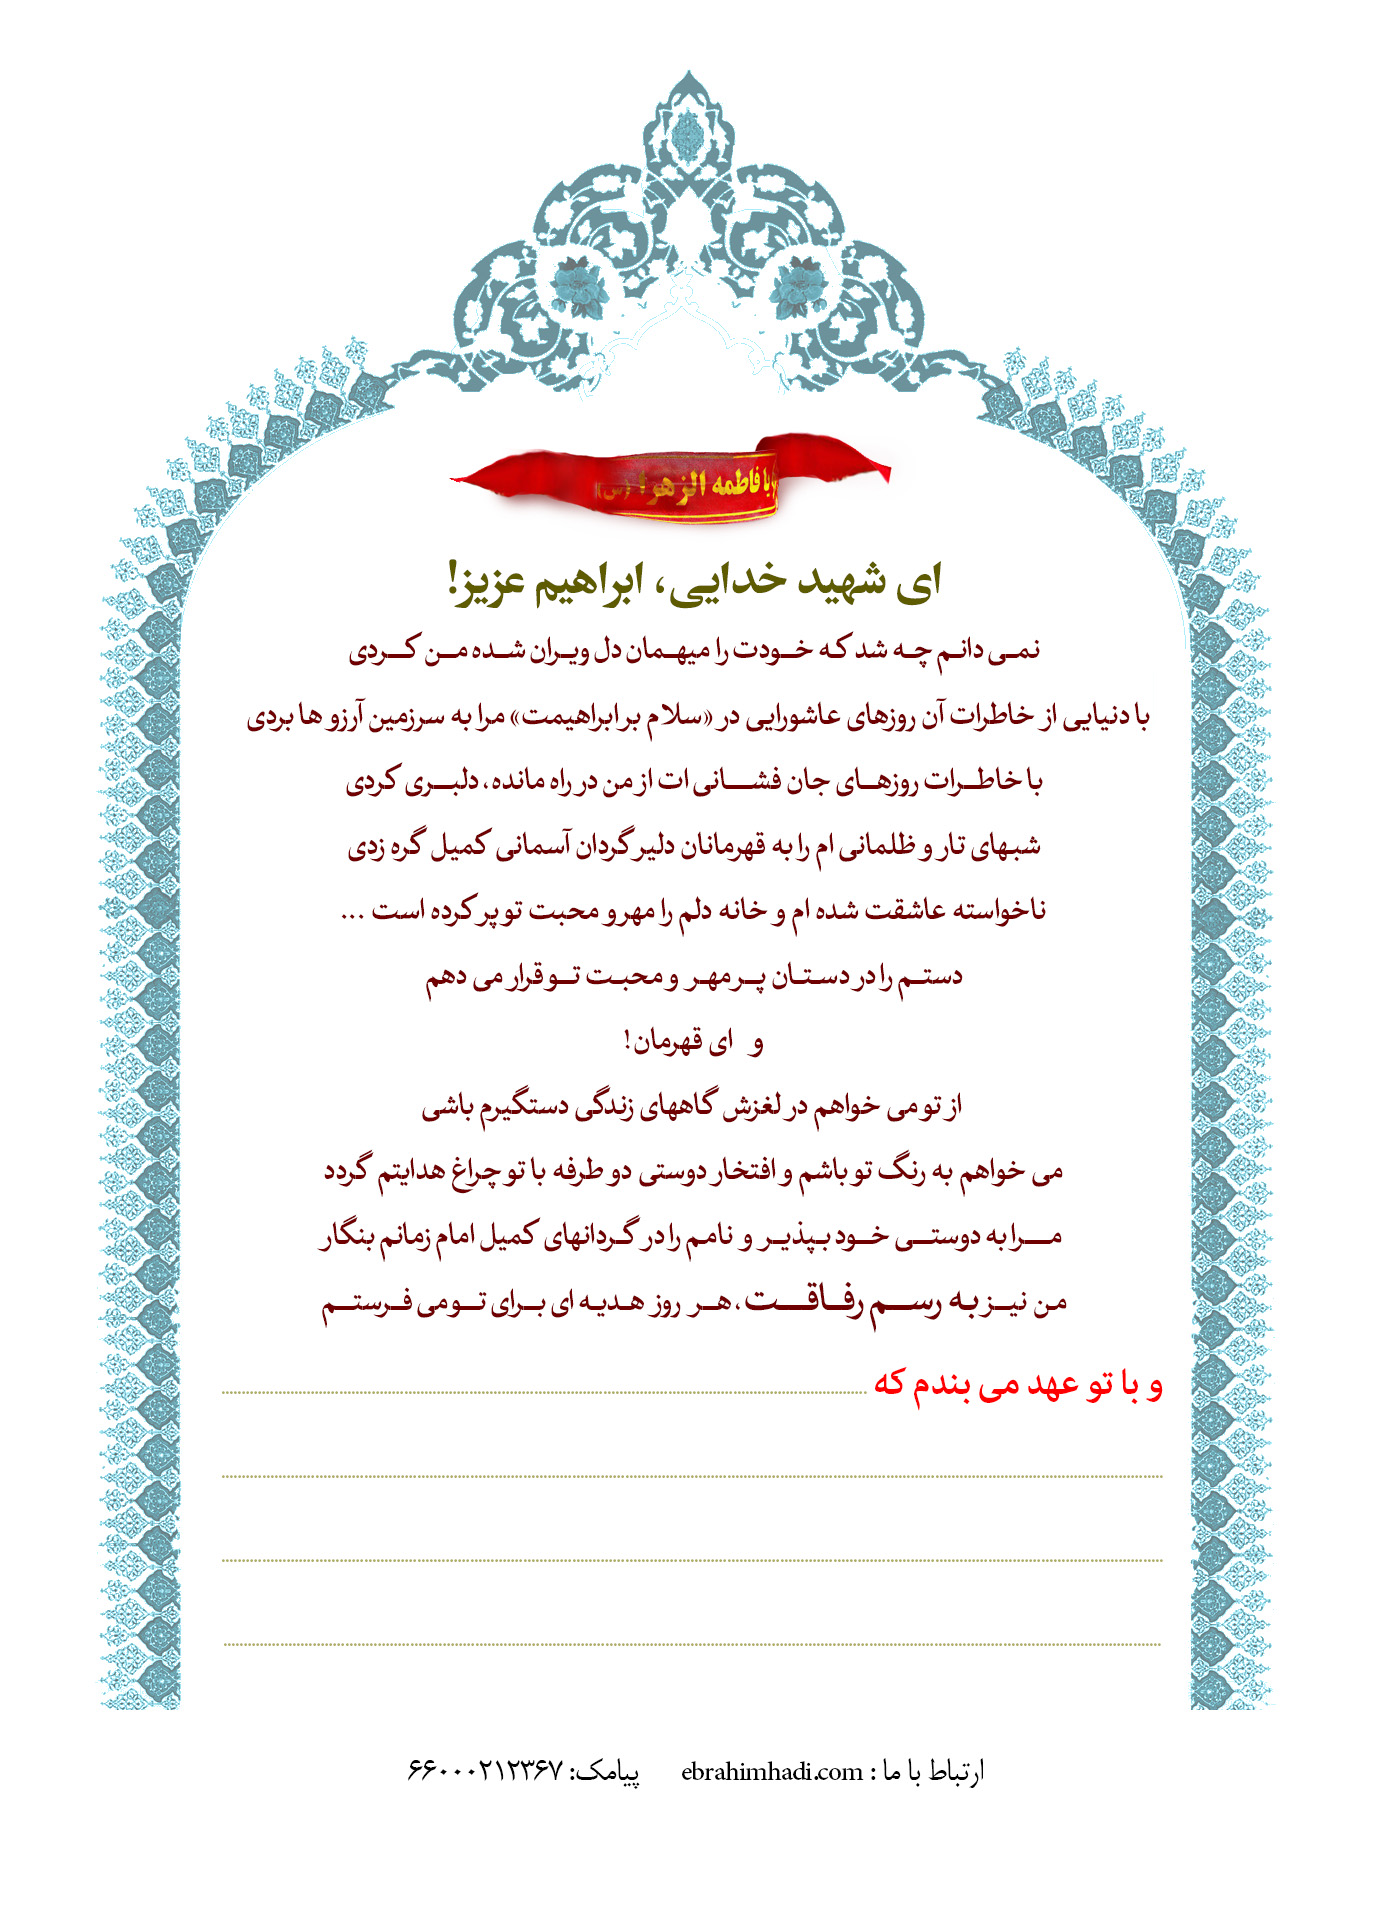 یا فاطمه الزهرا (س)
ای شهید خدایی، ابراهیم عزیز!
نمی دانم چه شد که خودت را میهمان دل ویران شده من کردی
با دنیایی از خاطرات آن روزهای عاشورایی در «سلام بر ابراهیمت» مرا به سرزمین آرزو ها بردی
با خاطرات روزهای جان فشانی ات از من در راه مانده، دلبری کردی
شبهای تار و ظلمانی ام را به قهرمانان دلیر گردان آسمانی کمیل گره زدی
ناخواسته عاشقت شده ام و خانه دلم را مهر و محبت تو پر کرده است ...
دستم را در دستان پر مهر و محبت تو قرار می دهم
و ای قهرمان!
از تو می خواهم در لغزش گاههای زندگی دستگیرم باشی
می خواهم به رنگ تو باشم و افتخار دوستی دو طرفه با تو چراغ هدایتم گردد
مرا به دوستی خود بپذیر و نامم را در گردانهای کمیل امام زمانم بنگار
من نیز به رسم رفاقت، هر روز هدیه ای برای تو می فرستم
و با تو عهد می بندم که
ارتباط با ما : ebrahimhadi.com پیامک: ۶۶۰۰۰۲۱۲۳۶۷